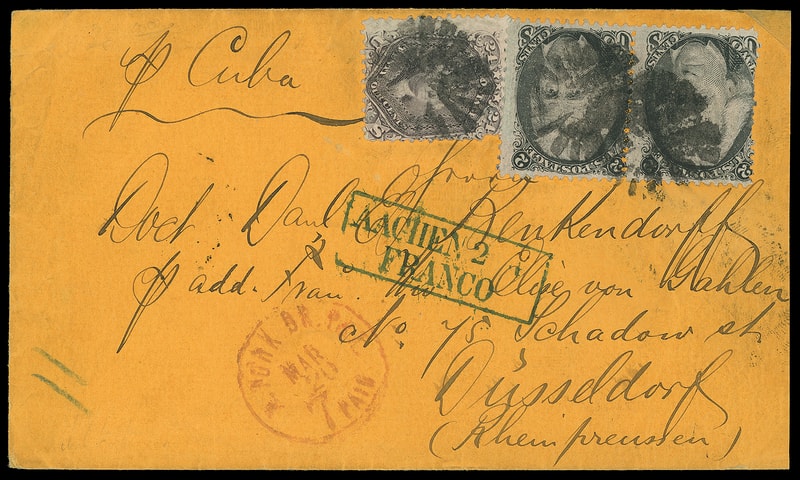 p Cuba
Herrn
Doct Paul E. Benkendorff
p add. Frau Elise von Gahlen
No 75 Schadow st.
Düsseldorf
(Rheinpreussen)
AACHEN 2
FRANCO
N. YORK BR. PKT.
MAR
7
PAID
U.S. POSTAGE